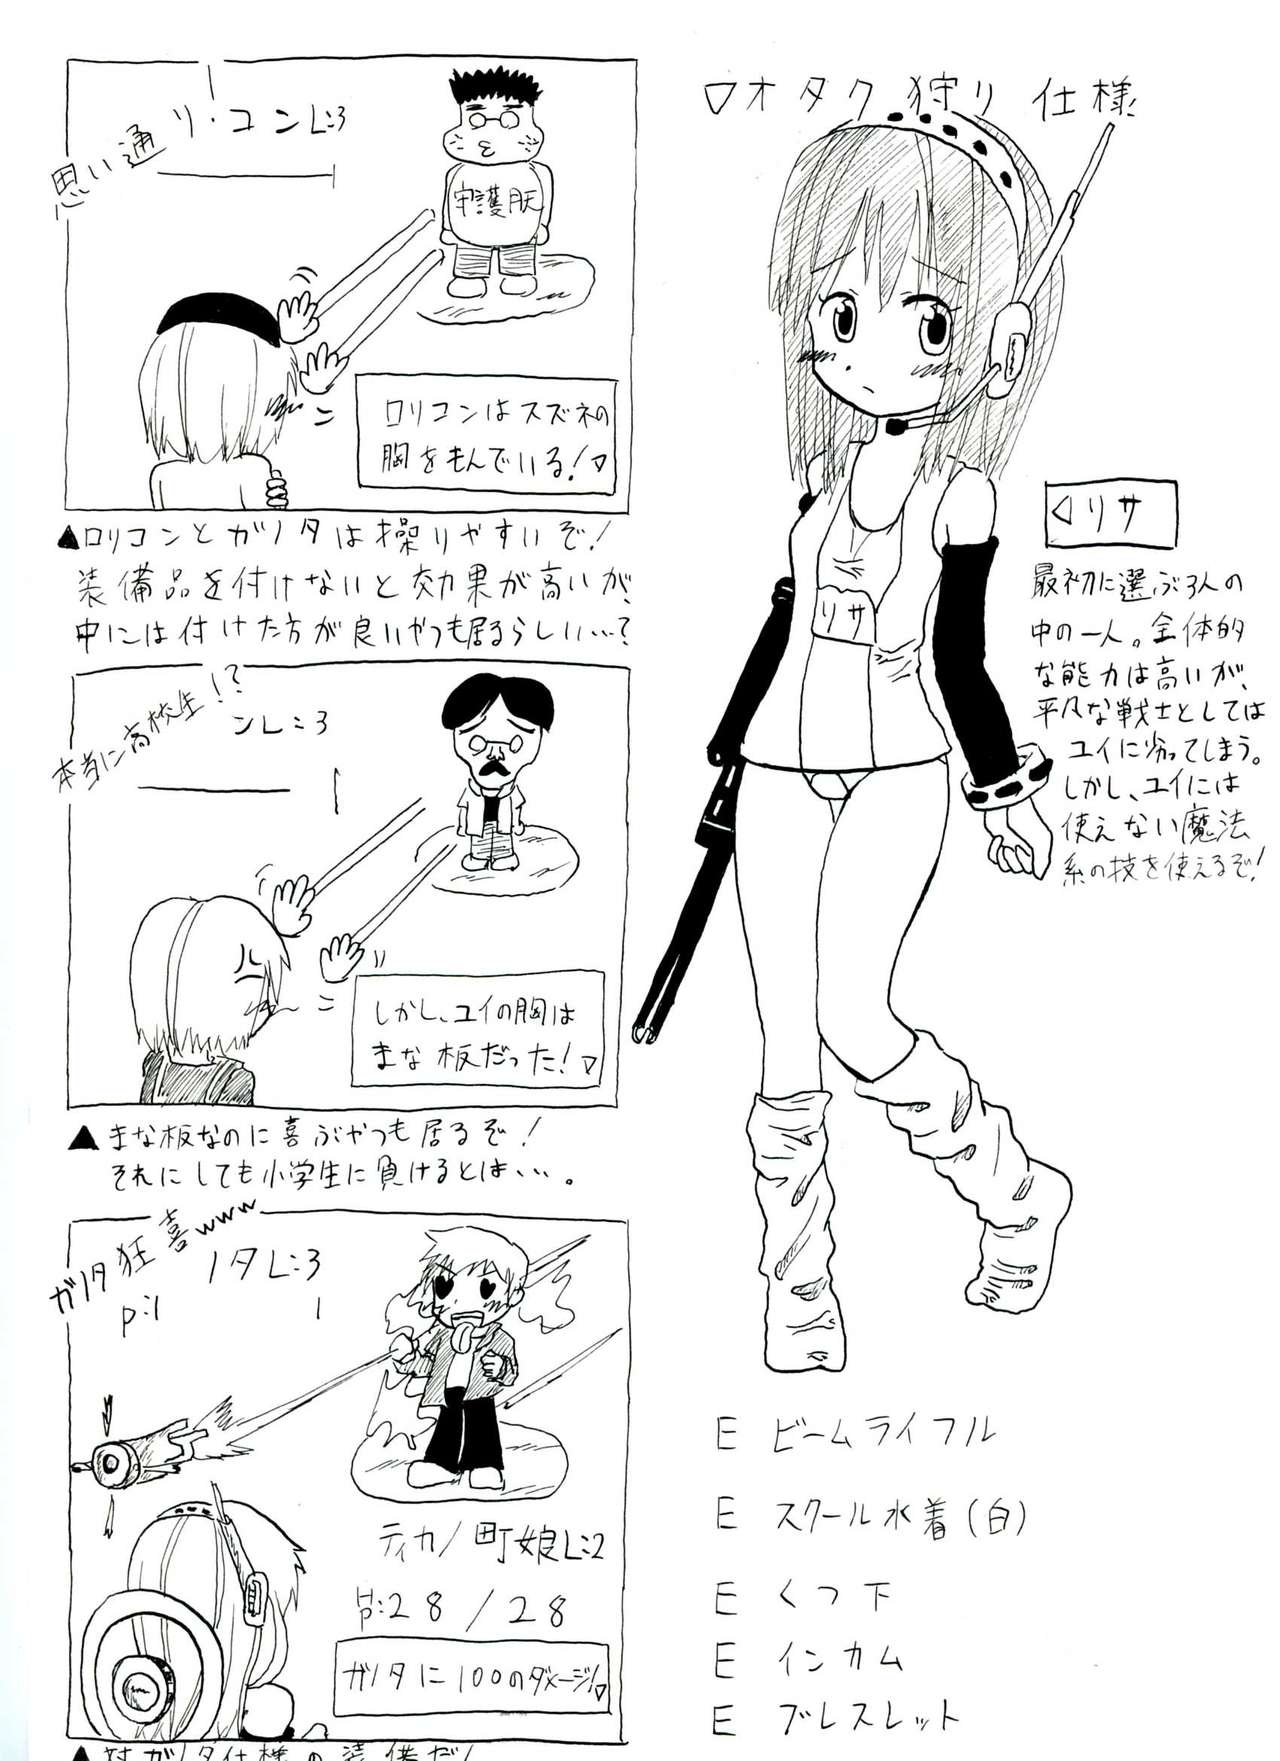 ▽オタク狩り仕様
思い通
リ・コンL:3
守護朕
ロリコンはスズネの
胸をもんでいる!▽
▲ロリコンとガノタは操りやすいぞ!
装備品を付けないと効果が高いが、
中には付けた方が良いやつも居るらしい…?
本当に高校生!?
ンL:3
しかし、ユイの胸は
まな板だった!▽
▲まな板なのに喜ぶやつも居るぞ!
それにしても小学生に負けるとは…。
ガノタ狂喜www
ノタL:3
p:1
ティカノ町娘L:2
HP:28/28
ガノタに100のダメージ!▽
▲対ガノタ仕様の装備だ!
リサ
◁リサ
最初に選ぶ3人の
中の一人。全体的
な能力は高いが、
平凡な戦士としては
ユイに劣ってしまう。
しかし、ユイには
使えない魔法
系の技を使えるぞ!
E ビームライフル
E スクール水着(白)
E くつ下
E インカム
E ブレスレット